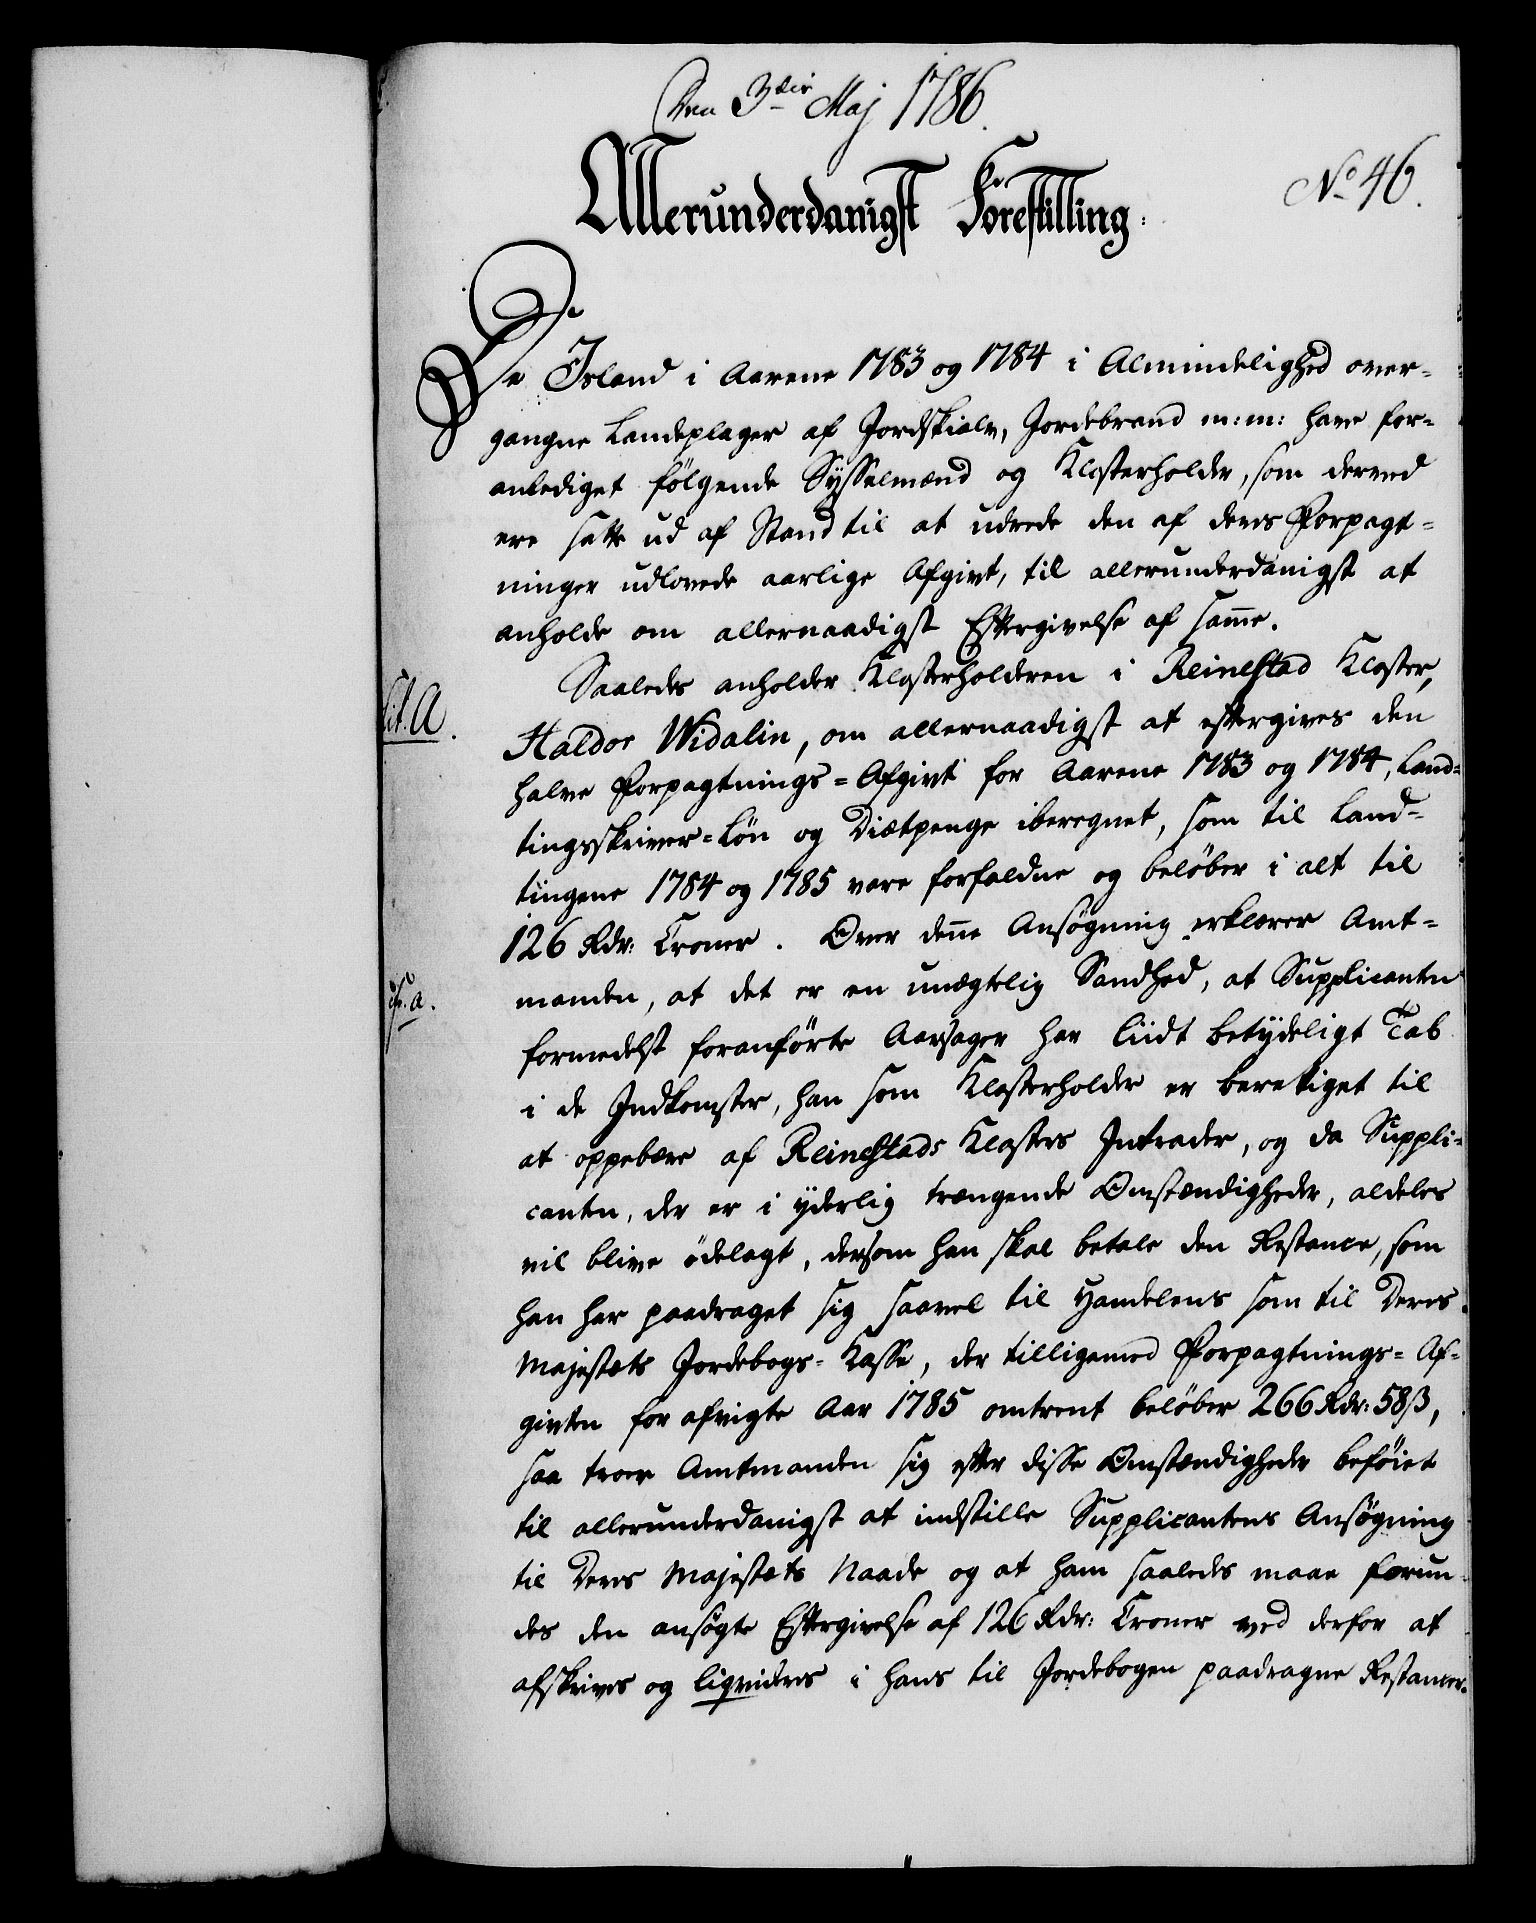 Den 3die Maj 1786.
No 46.
Allerunderdanigst Forestilling.
De Island i Aarene 1783 og 1784 i Almindelighed over-
gangne Landeplager af Jordskielv, Jordebrand m: m: have for-
anlediget følgende Sysselmænd og Klosterholder, som derved
ere satte ud af Stand til at udrede den af deres Forpagt-
ninger udlovede aarlige Afgivt, til allerunderdanigst at
anholde om allernaadigst Eftergivelse af samme.
Lit. A.
Saaledes anholder Klosterholderen i Reinestad Kloster,
Haldor Widalin, om allernaadigst at eftergives den
halve Forpagtnings-Afgivt for Aarene 1783 og 1784, Land-
tingsskriver-Løn og Diætpenge iberegnet, som til Land-
tingene 1784 og 1785 vare forfaldne og beløber i alt til
126 Rdr: Croner. Over denne Ansøgning erklærer Amt-
cfr. a.
manden, at det er en unægtelig Sandhed, at Supplicanten
formedelst foranførte Aarsager har liidt betydeligt Tab
i de Indkomster, han som Klosterholder er berettiget til
at oppebære af Reinestads Klosters Intrader, og da Suppli-
canten, der er i yderlig trængende Omstændigheder, aldeles
vil blive ødelagt, dersom han skal betale den Restance, som
han har paadraget sig saavel til Handelens som til Deres
Majestæts Jordebogs-Kasse, der tilligemed Forpagtnings-Af-
givten for afvigte Aar 1785 omtrent beløber 266 Rdr: 58 ß,
saa troer Amtmanden sig efter disse Omstændigheder beføiet
til allerunderdanigst at indstille Supplicantens Ansøgning
til Deres Majestæts Naade og at ham saaledes maae forun-
des den ansøgte Eftergivelse af 126 Rdr: Croner ved derfor at
afskrives og liqvideres i hans til Jordebogen paadragne Restancer.